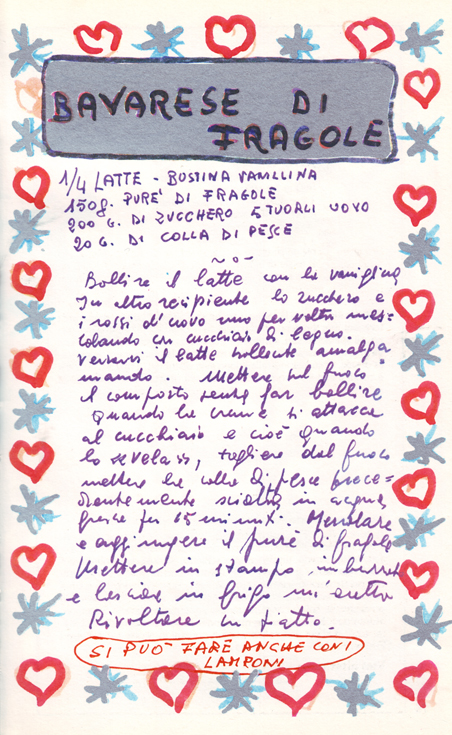 BAVARESE DI
FRAGOLE
1/4 LATTE - BUSTINA VANILLINA
150g. PURE' DI FRAGOLE
200 G. DI ZUCCHERO 5 TUORLI UOVO
20 G. DI COLLA DI PESCE
~ o -
Bollire il latte con la vaniglina
In altro recipiente lo zucchero e
i rossi d'uovo uno per volta mes-
colando con cucchiaio di legno.
Versarvi il latte bollente amalga
mando. Mettere sul fuoco
il composto senza far bollire
Quando la crema si attacca
al cucchiaio e cioè quando
lo vela, togliere dal fuoco
mettere la colla di pesce prece=
dentemente sciolta in acqua
fresca per 15 minuti. Mescolare
e aggiungere il purè di fragole
Mettere in stampo imburrato
e lasciare in frigo
Rivoltare in piatto.
SI PUO' FARE ANCHE CON I
LAMPONI